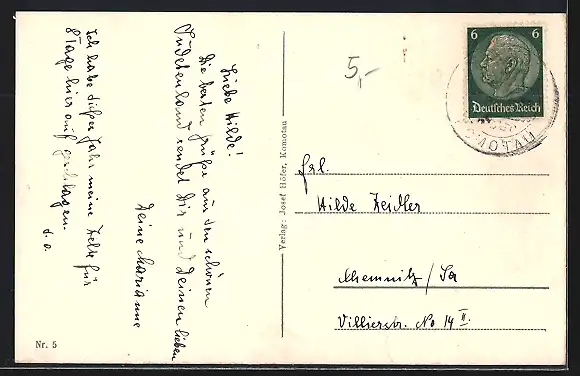 Liebe Hilde!
Die besten Grüße aus den schönen
Sudetenland sendet Dir und Deinen Lieben
Deine Marianne
Ich habe dießes Jahr meine Zelte für
8 Tage hier aufgeschlagen.
d. o.
Nr. 5
Verlag: Josef Höfer, Komotau
5,-
6 6
Deutsches Reich
KOMOTAU
Frl.
Hilde Zeidler
Chemnitz / Sa
Villierstr. No 14 II.